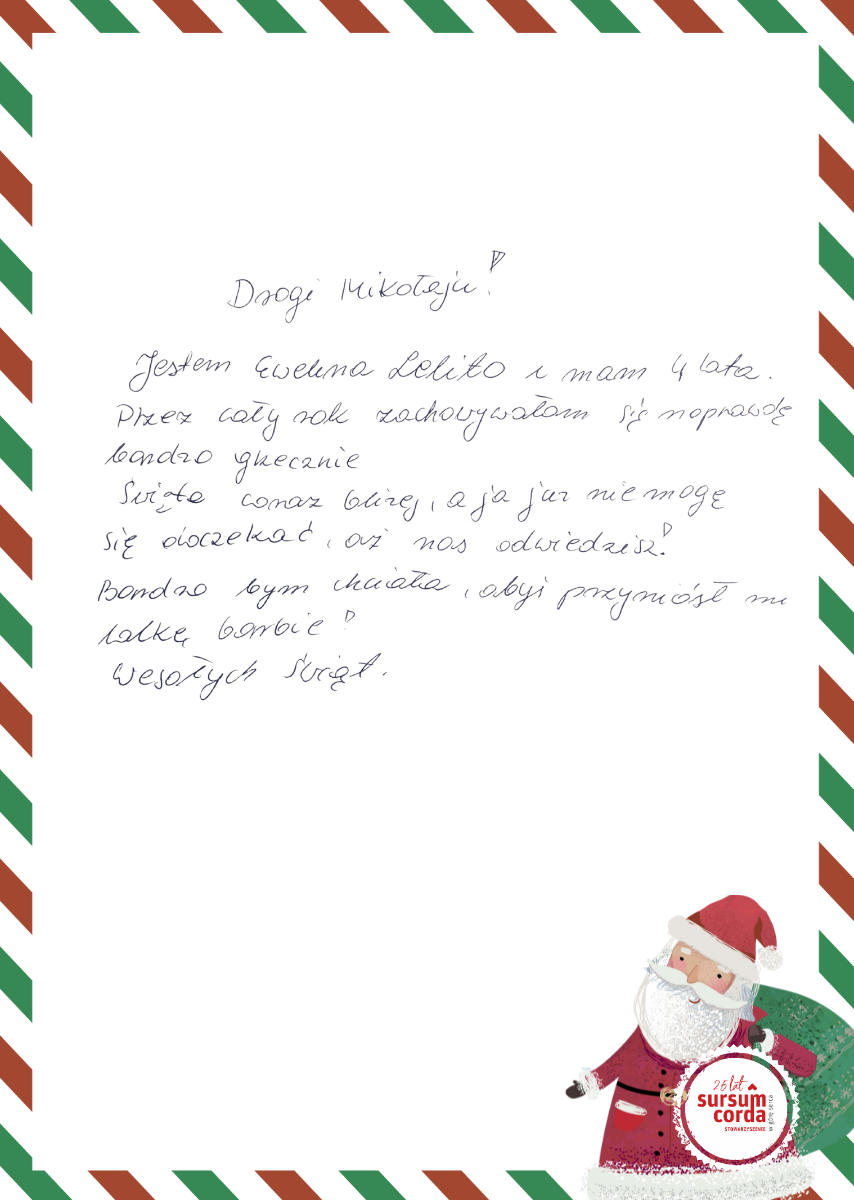 Drogi Mikołaju!
Jestem Ewelina Lelito i mam 4 lata.
Przez cały rok zachowywałam się naprawdę
bardzo grzecznie
Święta coraz bliżej, a ja już nie mogę
się doczekać, aż nas odwiedzisz!
Bardzo bym chciała, abyś przyniósł mi
lalkę barbie!
Wesołych Świąt.
25 lat
sursum
corda
STOWARZYSZENIE
w górę serca